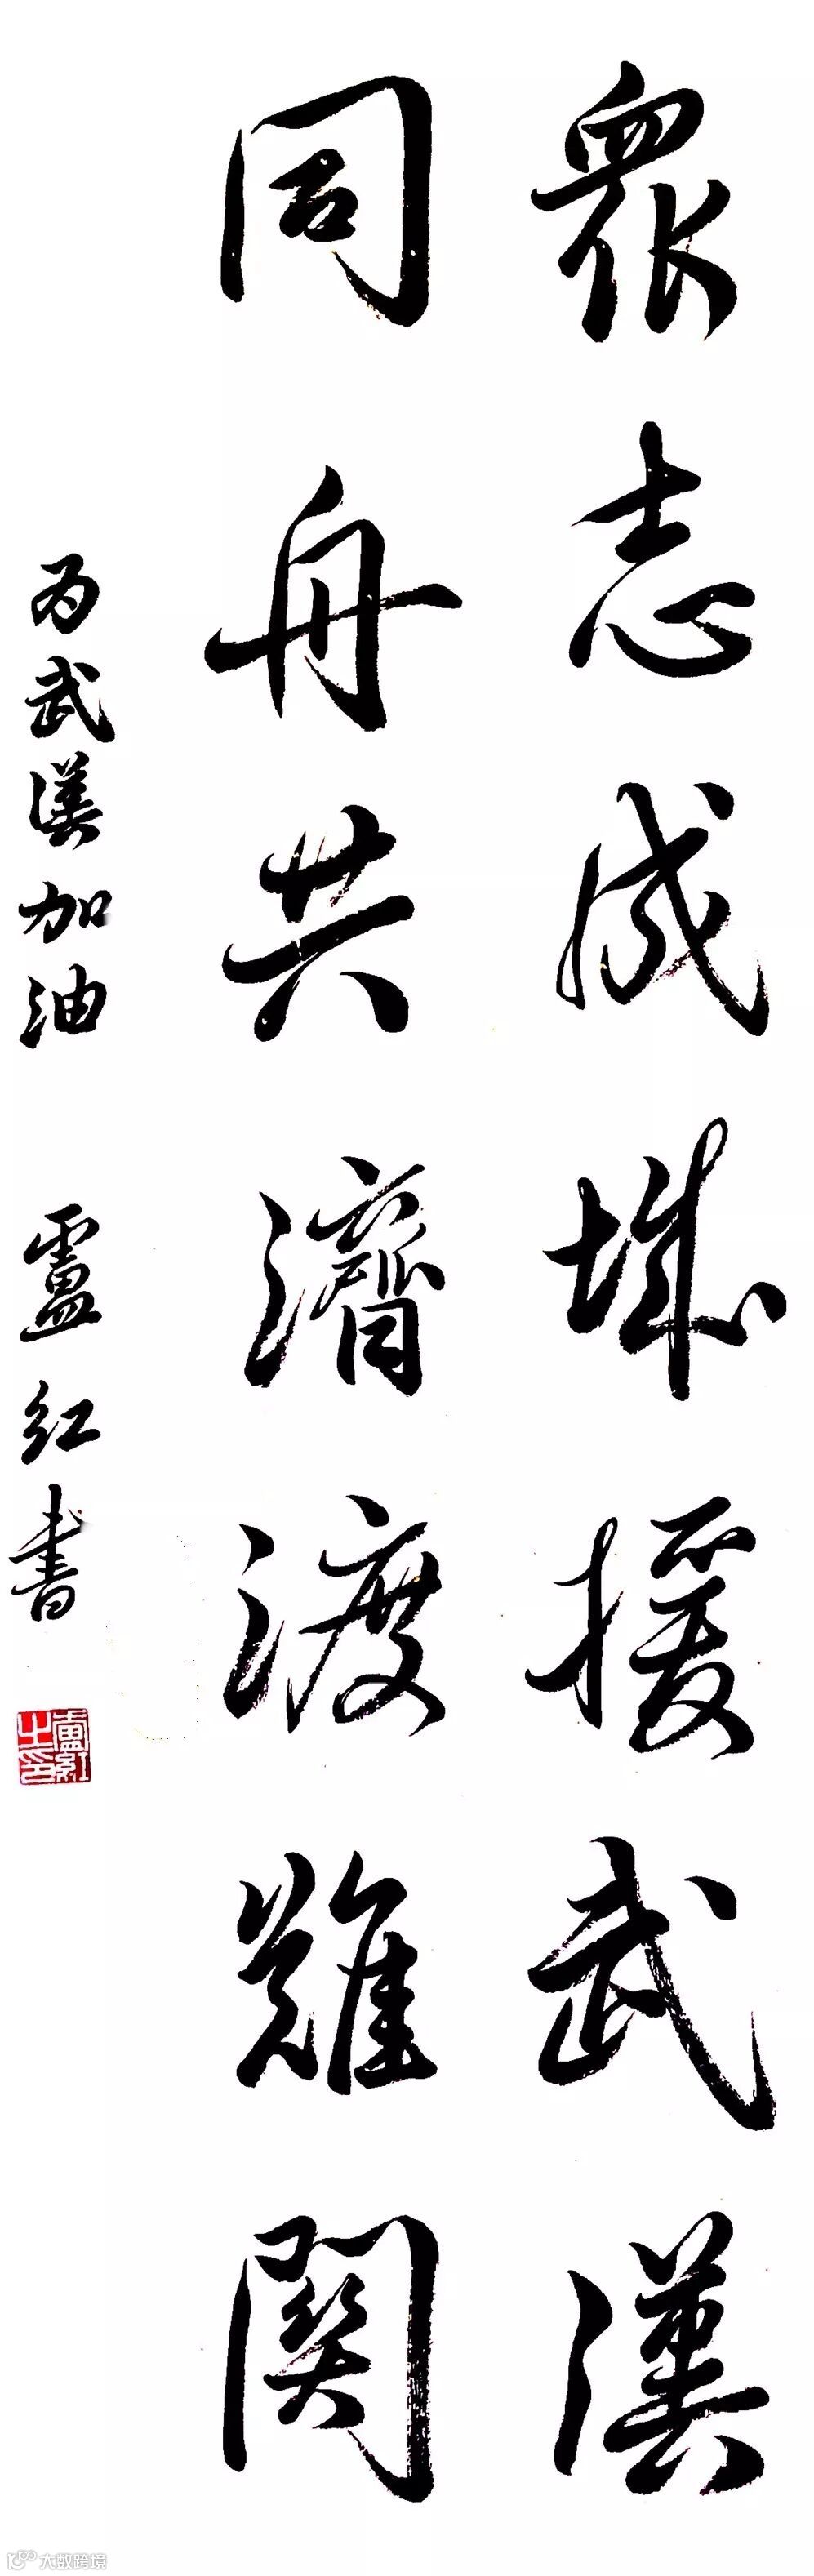 眾志成城援武漢
同舟共濟渡難關
为武漢加油 盧紅書
盧紅之印
大数跨境